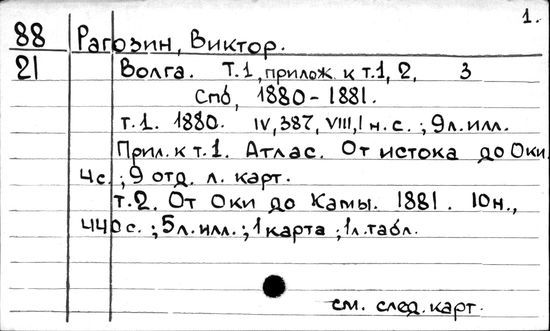 1.
88 Рагозин, Виктор.
21 Волга. Т.1, прилож. к т.1, 2, 3
Спб, 1880-1881.
т.1. 1880. IV, 387, VIII, 1 н.с.; 9 л. илл.
Прил. к т.1. Атлас. От истока до Оки.
4с.; 9 отд. л. карт.
т.2. От Оки до Камы. 1881. 10н.,
440 с.; 5л. илл.; 1 карта; 1л. табл.
см. след. карт.